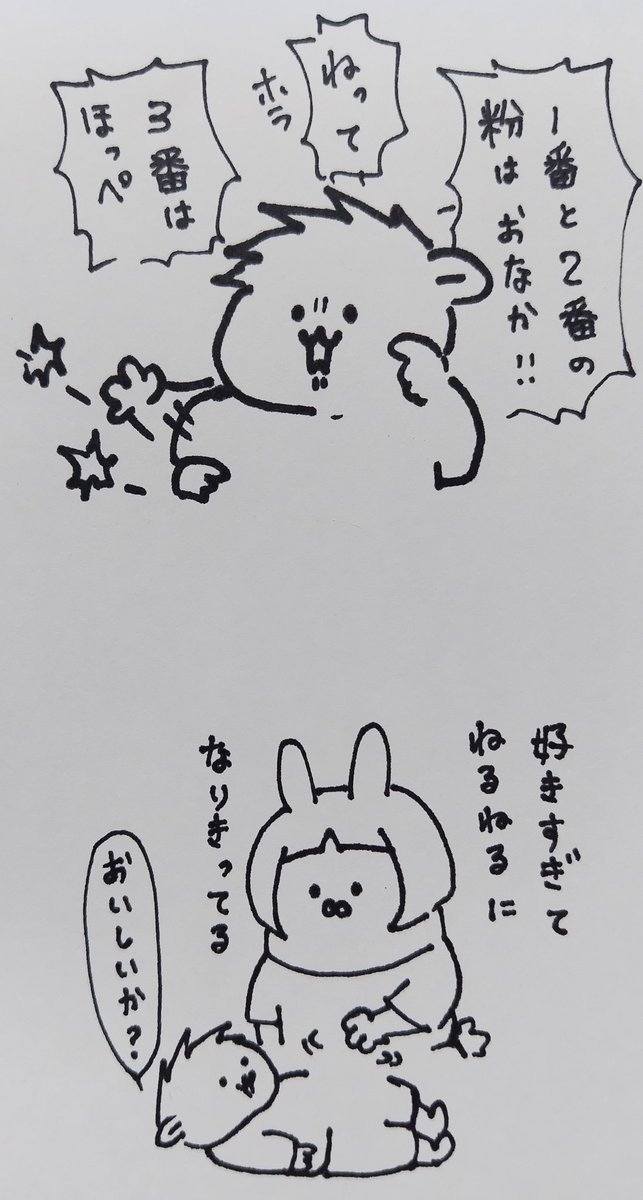 1番と2番の
粉はおなか!!
ねって
ホラ
3番は
ほっぺ
好きすぎて
ねるねるに
なりきってる
おいしいか?